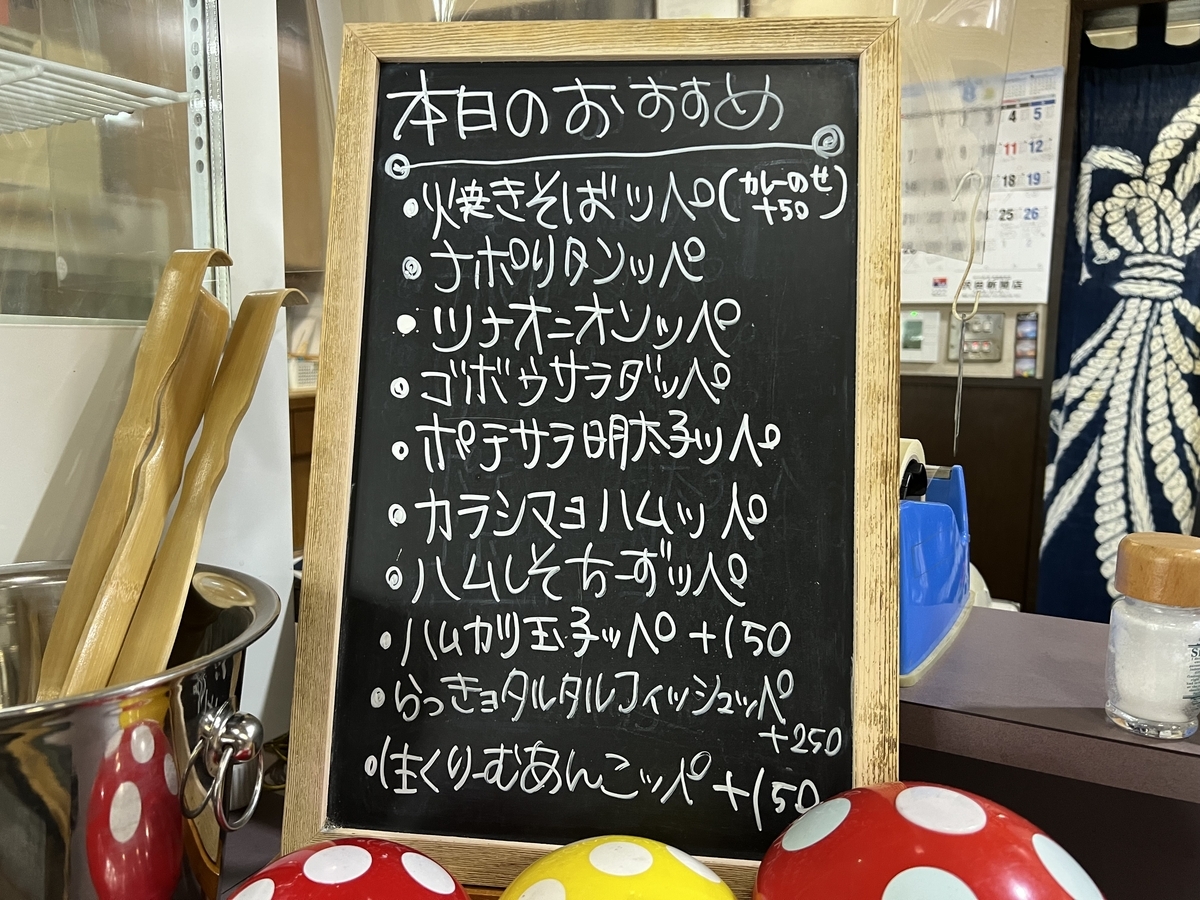 本日のおすすめ
焼きそばッペ(カレーのせ +50)
ナポリタンッペ
ツナオニオンッペ
ゴボウサラダッペ
ポテサラ明太子ッペ
カラシマヨハムッペ
ハムしそちーずッペ
ハムカツ玉子ッペ +150
らっきョタルタルフィッシュッペ
+250
生くりーむあんこッペ +150
4 5
11 12
18 19
25 26